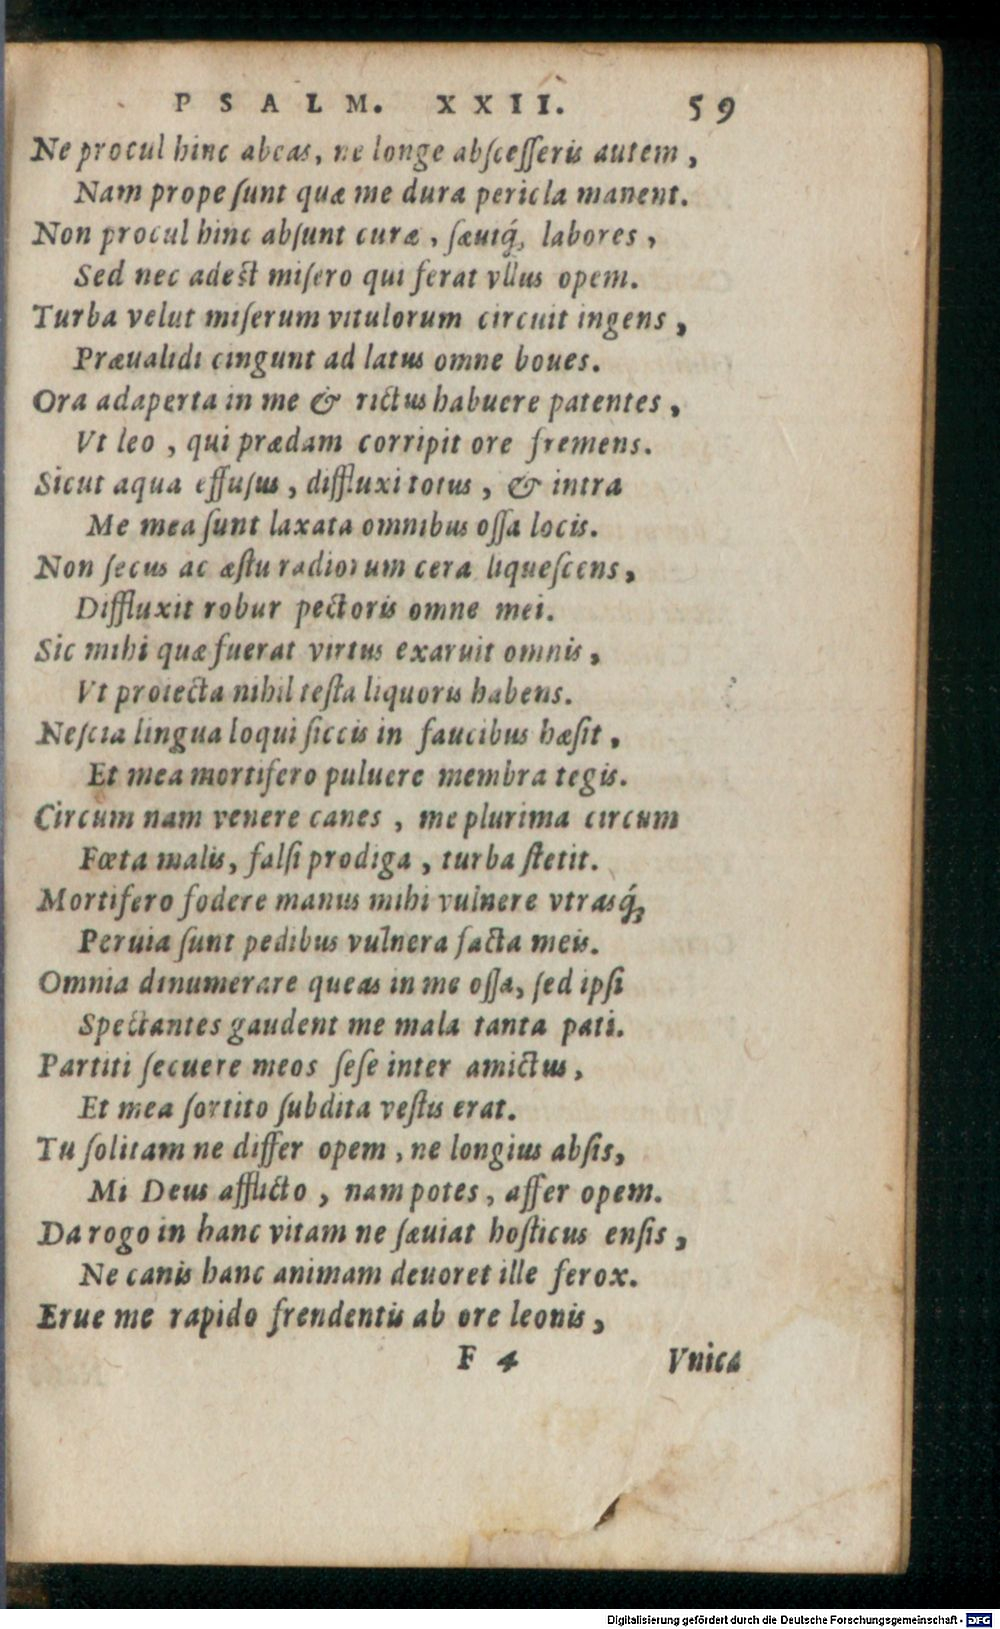 PSALM. XXII. 59
Ne procul hinc abeas, ne longe abſceſſeris autem,
Nam prope ſunt quæ me dura pericla manent.
Non procul hinc abſunt curæ, ſæuiq́; labores,
Sed nec adest miſero qui ferat vllus opem.
Turba velut miſerum vitulorum circuit ingens,
Præualidi cingunt ad latus omne boues.
Ora adaperta in me & rictus habuere patentes,
Vt leo, qui prædam corripit ore fremens.
Sicut aqua effuſus, diffluxi totus, & intra
Me mea ſunt laxata omnibus oſſa locis.
Non ſecus ac æſtu radiorum cera liqueſcens,
Diffluxit robur pectoris omne mei.
Sic mihi quæ fuerat virtus exaruit omnis,
Vt proiecta nihil teſta liquoris habens.
Neſcia lingua loqui ſiccis in faucibus hæſit,
Et mea mortifero puluere membra tegis.
Circum nam venere canes, me plurima circum
Fœta malis, falſi prodiga, turba ſtetit.
Mortifero fodere manus mihi vulnere vtrasq́;
Peruia ſunt pedibus vulnera facta meis.
Omnia dinumerare queas in me oſſa, ſed ipſi
Spectantes gaudent me mala tanta pati.
Partiti ſecuere meos ſeſe inter amictus,
Et mea ſortito ſubdita veſtis erat.
Tu ſolitam ne differ opem, ne longius abſis,
Mi Deus afflicto, nam potes, affer opem.
Da rogo in hanc vitam ne ſæuiat hoſticus enſis,
Ne canis hanc animam deuoret ille ferox.
Erue me rapido frendentis ab ore leonis,
F 4 Vnica
Digitalisierung gefördert durch die Deutsche Forschungsgemeinschaft - DFG